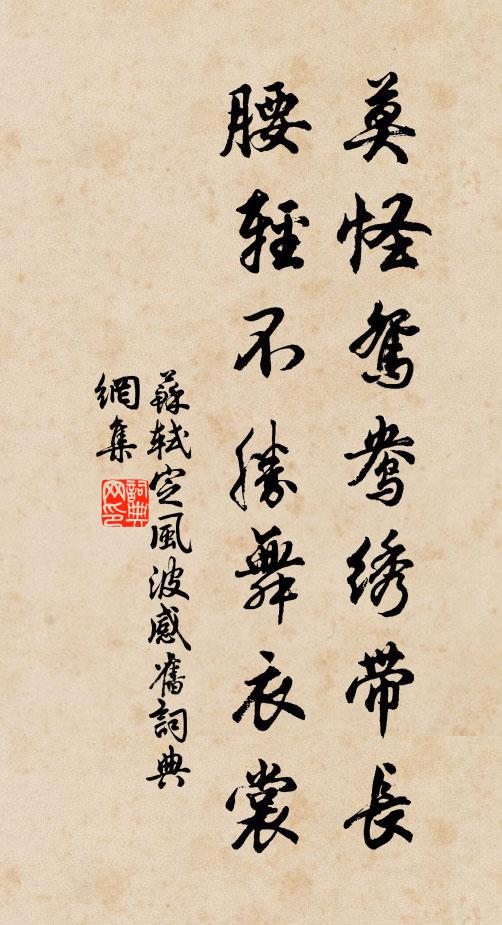 莫怪鴛鴦绣带長
腰輕不勝舞衣裳
蘇軾定風波感舊詞典
網集
詞典
网印